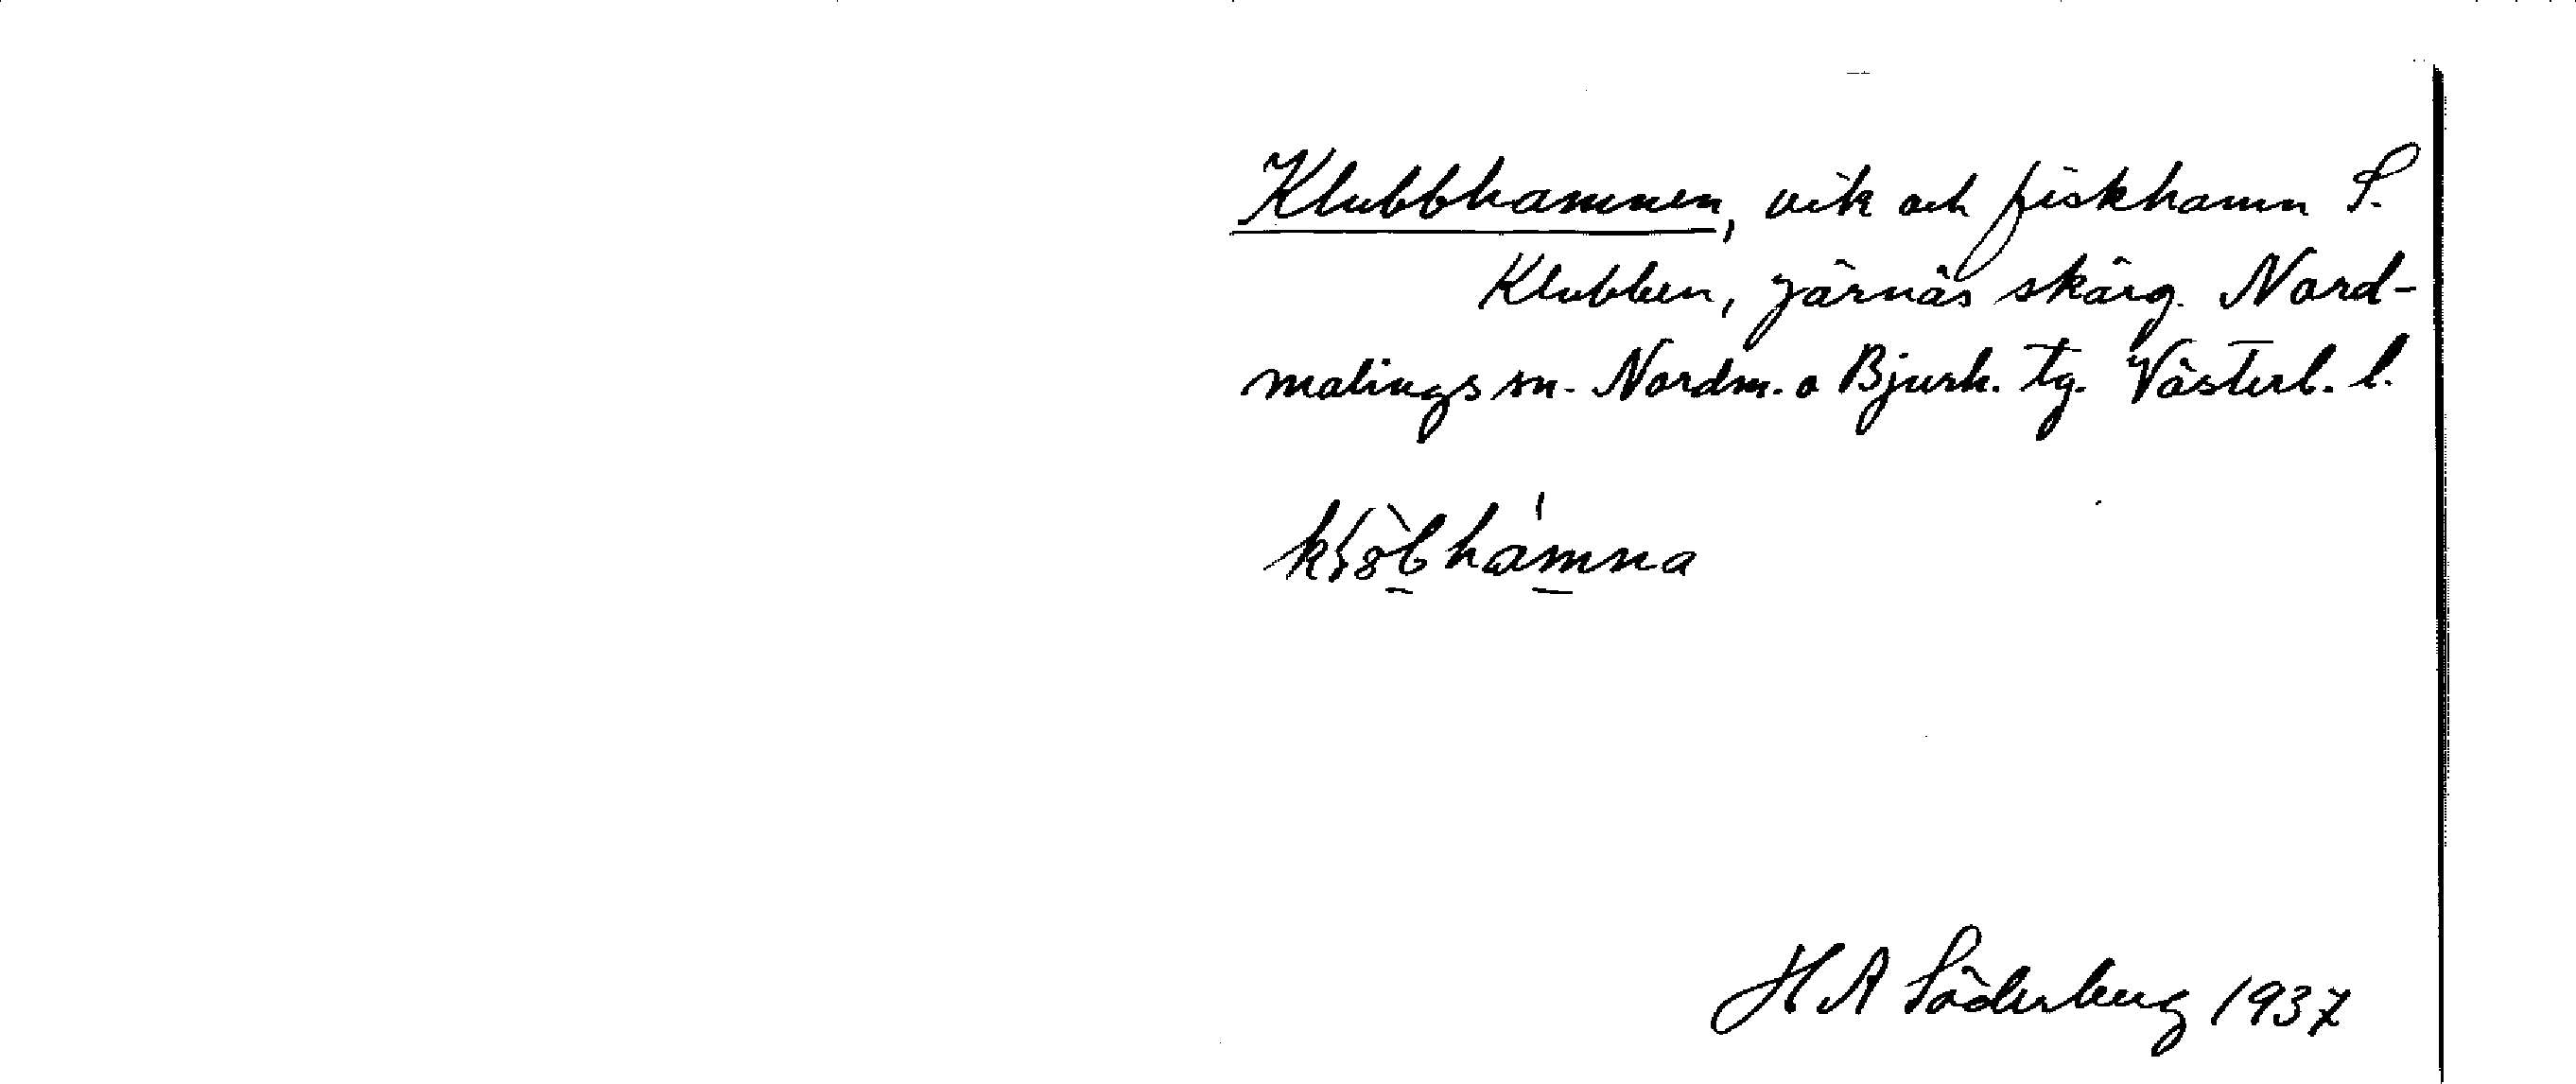 Klubbhamnen, vik och fiskhamn S.
Klubben, Järnäs skärg. Nord-
malings sn. Nordm. o Bjurh. tg. Västerb. l.
H A Söderberg 1937